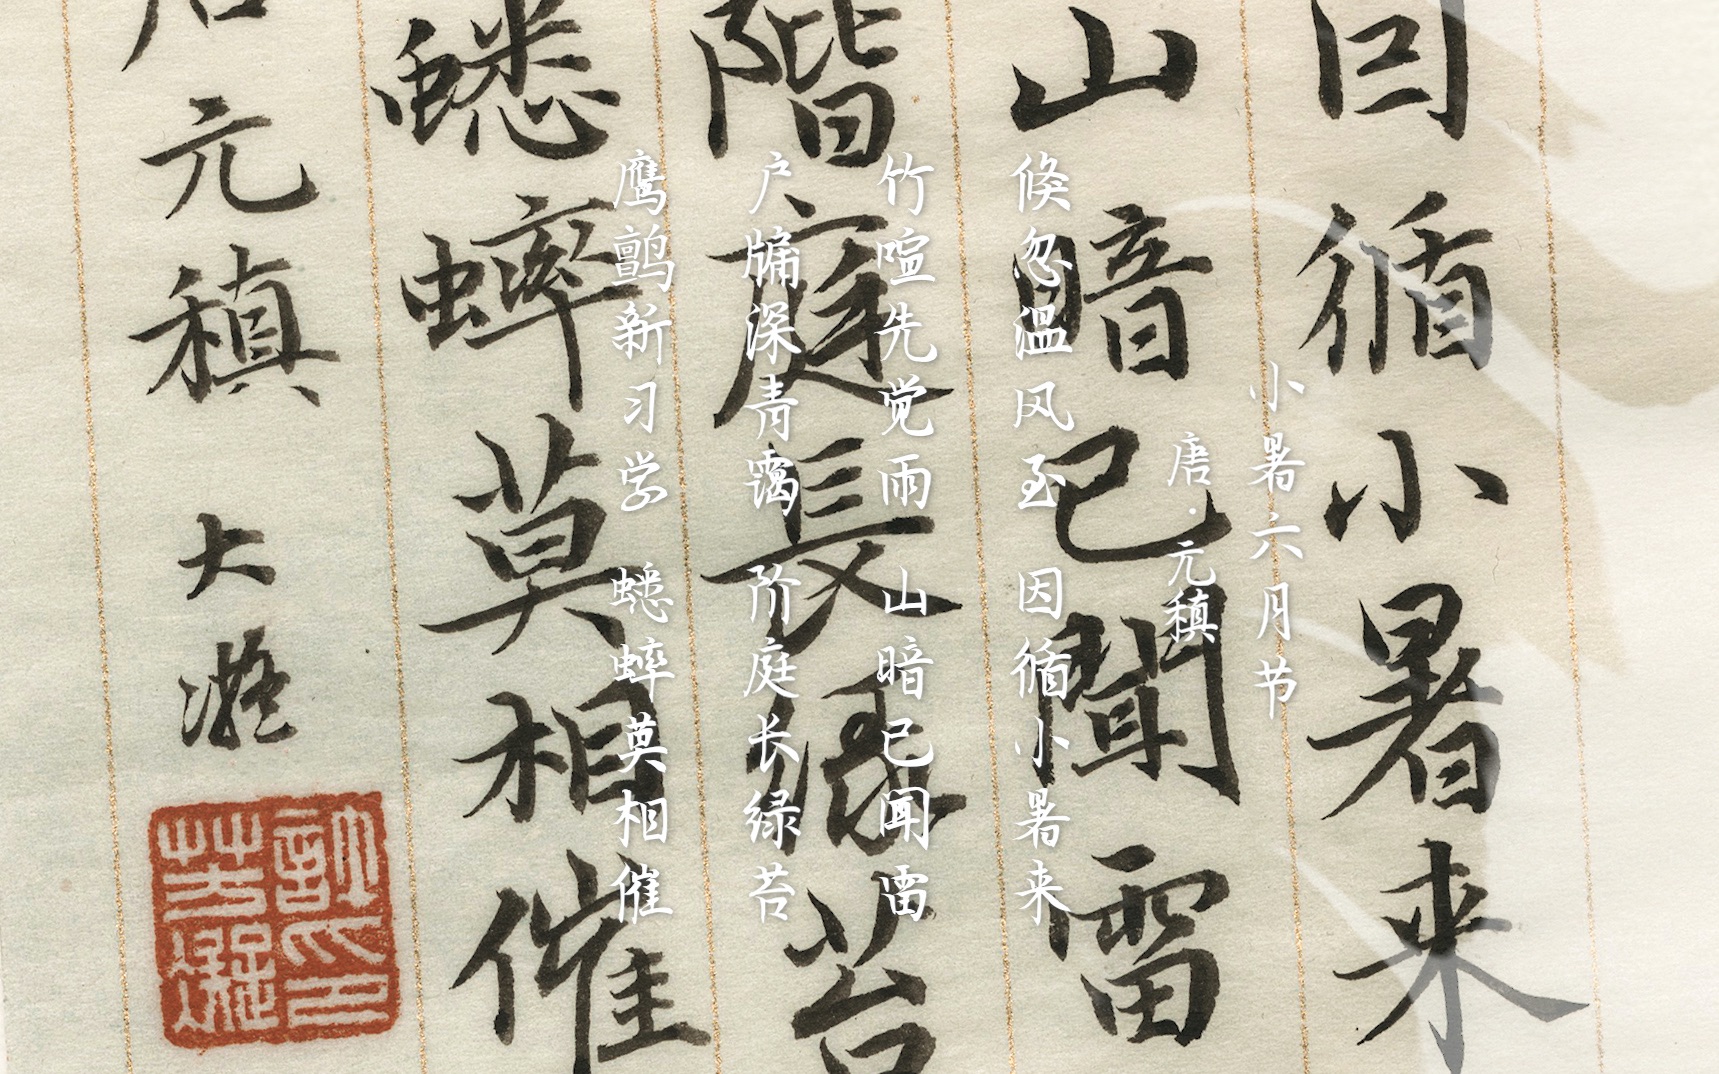 因循小暑来
山暗已聞雷
階庭長緑苔
蟋蟀莫相催
元稹 大凝
小暑六月节
唐·元稹
倏忽温风至 因循小暑来
竹喧先觉雨 山暗已闻雷
户牖深青霭 阶庭长绿苔
鹰鹯新习学 蟋蟀莫相催